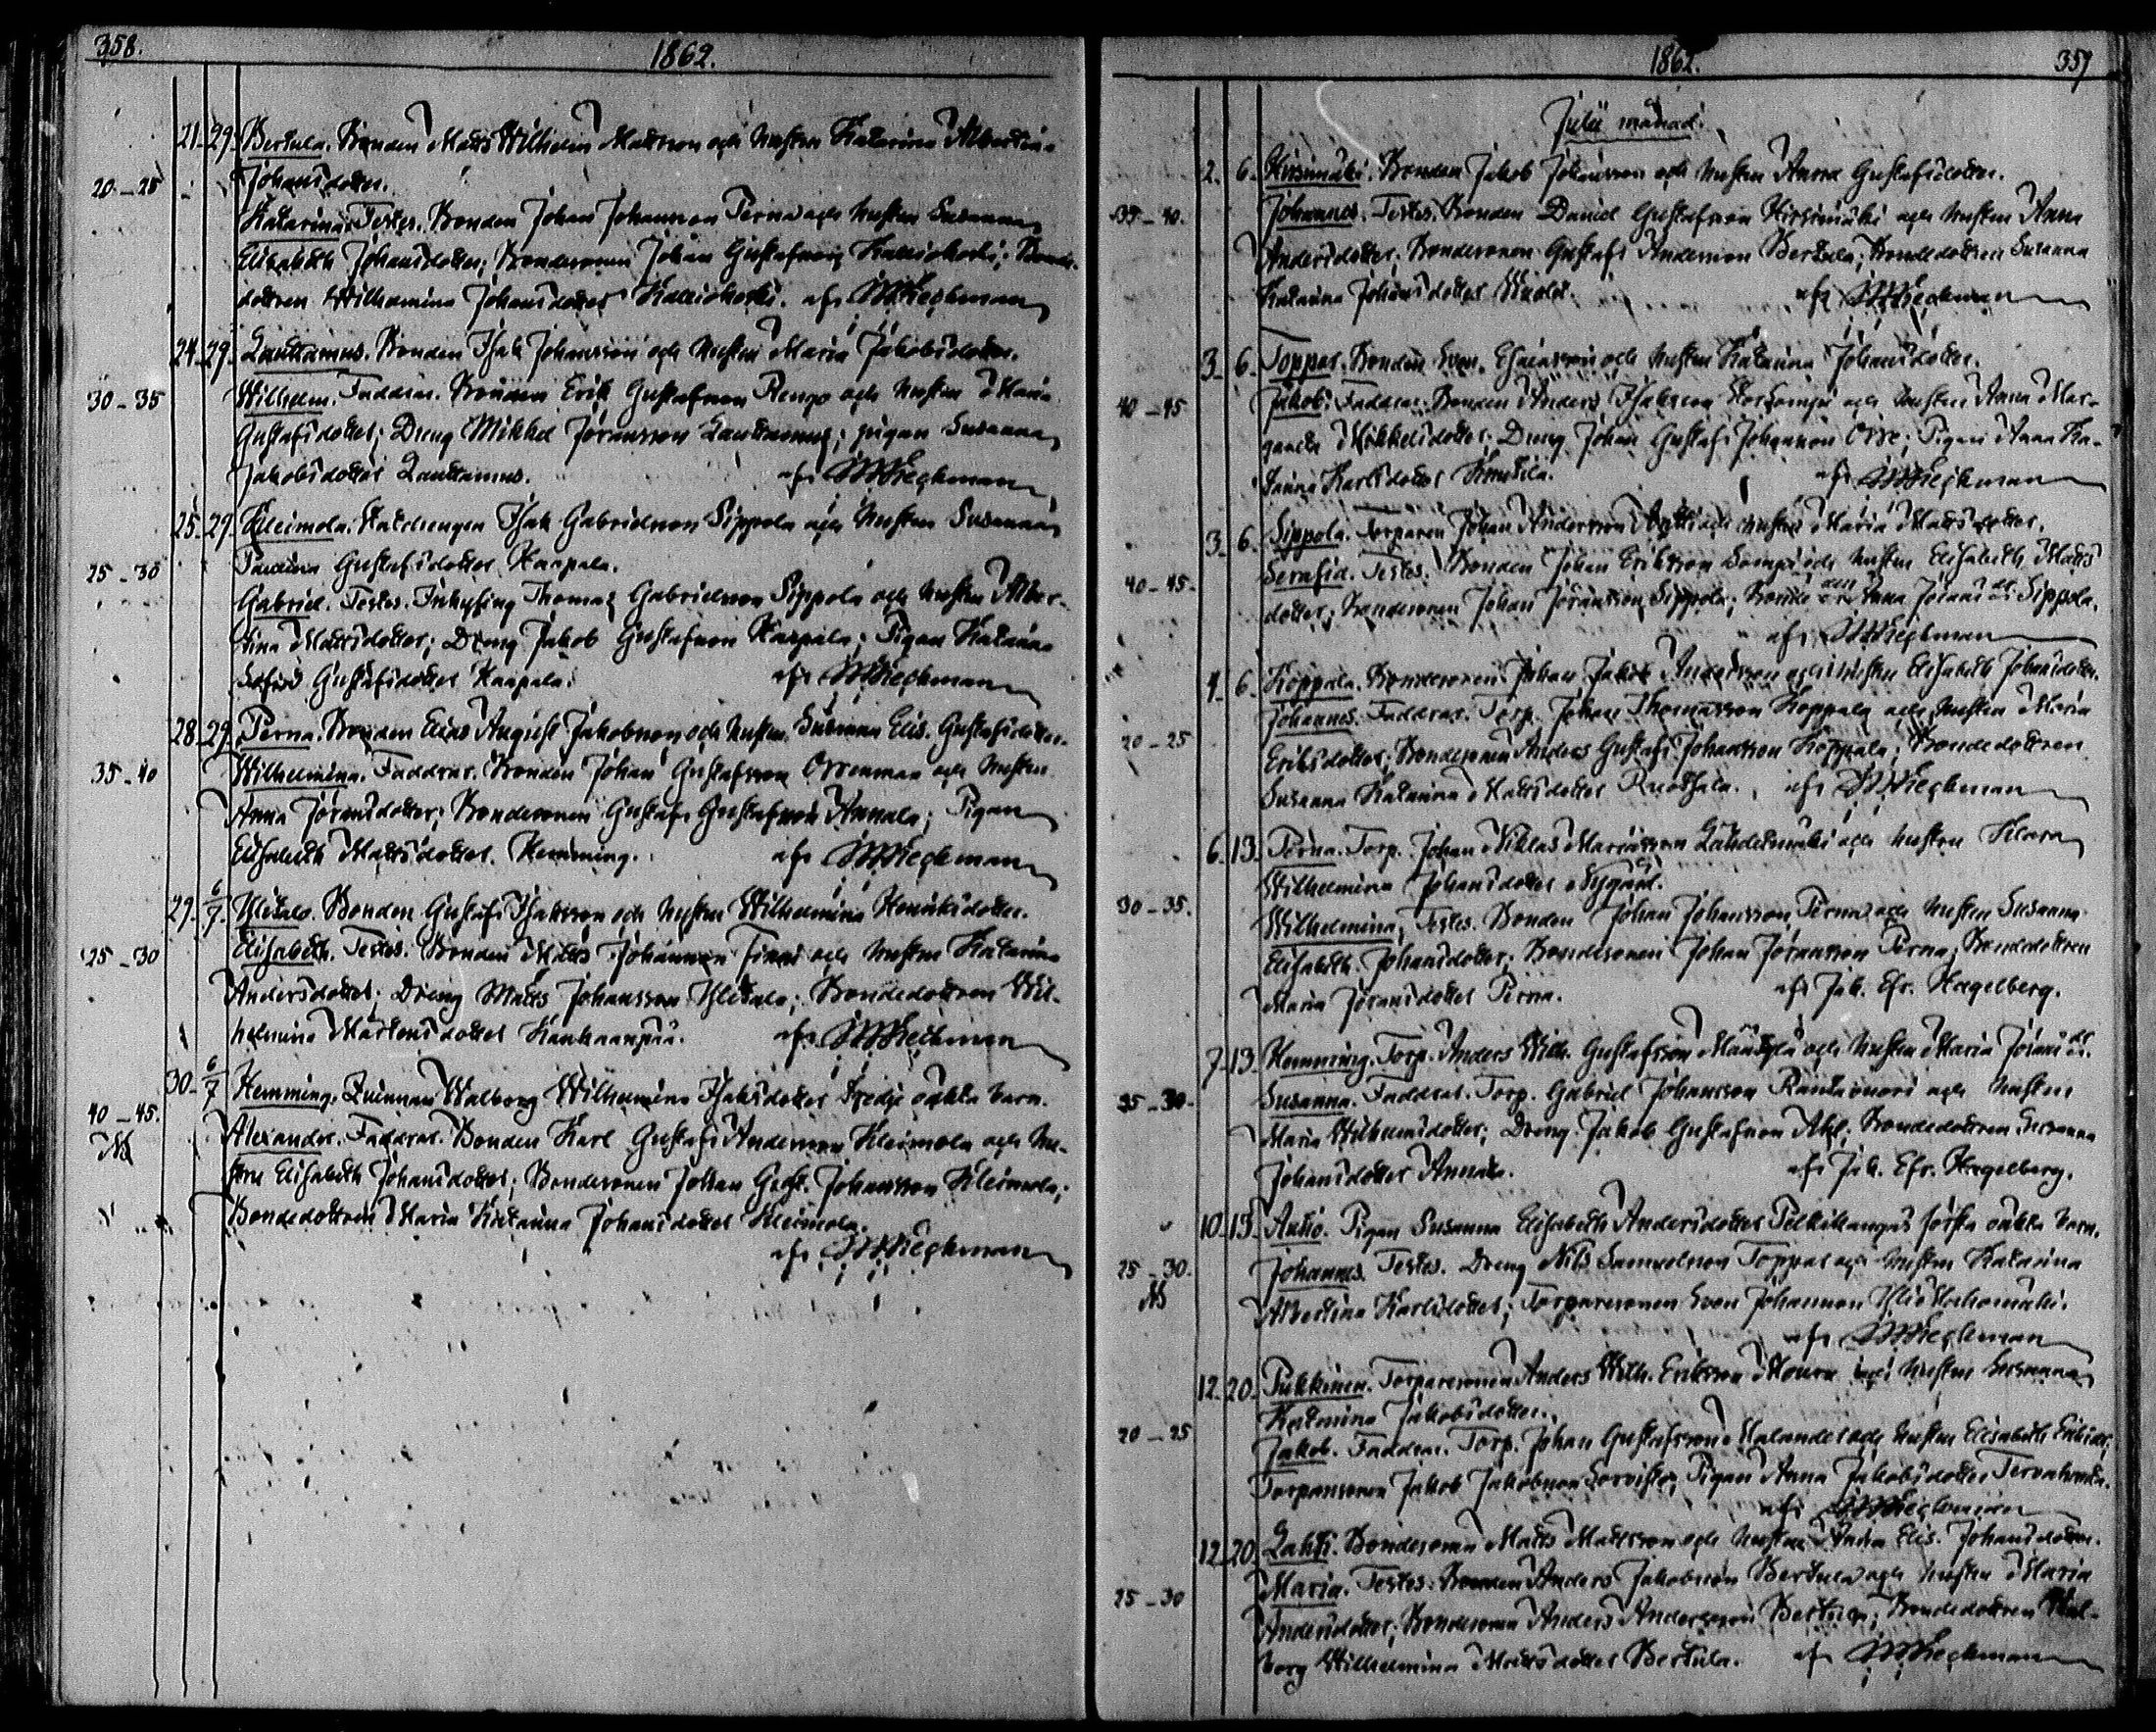 358.
1862.
21. 29. Bertula. Bonden Matts Wilhelm Mattsson och hustru Katarina Albertina
20-25 Johansdotter.
Katarina. Testes. Bonden Johan Johansson Perna och hustru Susanna
Elisabeth Johansdotter; Bondesonen Johan Gustafsson; Bonde-
dottren Wilhelmina Johansdotter afs
24. 29. Lauttamus. Bonden Isak Johansson och hustru Maria Jakobsdotter.
30-35 Wilhelm. Faddrar. Bonden Erik Gustafsson Rengo och hustru Maria
Gustafsdotter; Dreng Mikkel Jöransson Lauttamus; pigan Susanna
Jakobsdotter Lauttamus. afs
25. 29. Kleimola. Isak Gabrielsson Sippola och hustru Susanna
25-30 Gustafsdotter Kaapala.
Gabriel. Testes. Inhysing Thomas Gabrielsson Sippola och hustru Alber-
tina Mattsdotter; Dreng Jakob Gustafsson Kaapala; Pigan Katarina
Sofia Gustafsdotter Kaapala. afs
28. 29. Perna. Bonden Elias August Jakobsson och hustru Susanna Elis. Gustafsdotter.
35-40 Wilhelmina. Faddrar. Bonden Johan Gustafsson Orrenmaa och hustru
Anna Jöransdotter; Bondesonen Gustaf Gustafsson Annala; Pigan
Elisabeth Mattsdotter Hemming. afs
29. 6/7 Ylitalo. Bonden Gustaf Isaksson och hustru Wilhelmina Henriksdotter.
25-30 Elisabeth. Testes. Bonden Matts Johansson Finni och hustru Katarina
Andersdotter; Dreng Matts Johansson Ylitalo; Bondedottren Wil-
helmina Mårtensdotter Kankaanpää. afs
30. 6/7 Hemming. Qvinnan Walborg Wilhelmina Isaksdotter tredje oäkta barn.
40-45. Alexander. Faddrar. Bonden Karl Gustaf Andersson Kleimola och hu-
stru Elisabeth Johansdotter; Bondesonen Johan Gust. Johansson Kleimola;
Bondedottren Maria Katarina Johansdotter Kleimola.
afs
1862.
359
Julii månad.
2. 6. Hirsimäki. Bonden Jakob Johansson och hustru Anna Gustafsdotter.
35-40. Johannes. Testes. Bonden David Gustafsson Hirsimäki och hustru Anna
Andersdotter; Bondesonen Gustaf Andersson Bertula; Bondedottren Susanna
Katarina Johansdotter afs
3. 6. Toppar. Bonden Sven Esaiasson och hustru Katarina Johansdotter.
40-45 Jakob. Faddrar. Bonden Anders Isaksson och hustru Anna Mar-
gareta Mikkelsdotter; Dreng Johan Gustaf Johansson Orre; Pigan Anna Ka-
tarina Karlsdotter afs
3. 6. Sippola. Torparen Johan Andersson och hustru Maria Mattsdotter.
40-45. Serafia. Testes. Bonden Johan Eriksson och hustru Elisabeth Matts
dotter; Bondesonen Johan Jöransson Sippola; Anna Jöransdr Sippola.
afs
4. 6. Koppala. Bondesonen Johan Jakob Andersson och hustru Elisabeth Johansdotter.
20-25 Johannes. Faddrar. Torp. Johan Thomasson Koppala och hustru Maria
Eriksdotter; Bondesonen Anders Gustaf Johansson Koppala; Bondedottren
Susanna Katarina Mattsdotter afs
6. 13. Perna. Torp. Johan Niklas Mariasson Lähdesmäki och hustru Klara
Wilhelmina Johansdotter Nygård.
30-35. Wilhelmina. Testes. Bonden Johan Johansson Perna och hustru Susanna
Elisabeth Johansdotter; Bondesonen Johan Jöransson Perna; Bondedottren
Maria Jöransdotter Perna. afs Jak. Efr. Hagelberg.
7. 13. Hemming. Torp. Anders Wilh. Gustafsson Mäntylä och hustru Maria Jöransdr.
25-30. Susanna. Faddrar. Torp. Gabriel Johansson Rantavuori och hustru
Maria Wilhelmsdotter; Dreng Jakob Gustafsson Ahl; Bondedottren Susanna
Johansdotter Annala. afs Jak. Efr. Hagelberg.
10. 13. Autio. Pigan Susanna Elisabeth Andersdotter Pelkikangas första oäkta barn.
25-30. Johannes. Testes. Dreng Nils Samuelsson Toppar och hustru Katarina
Albertina Karlsdotter; Torparesonen Sven Johansson
afs
12. 20. Pukkinen. Torparesonen Anders Wilh. Eriksson och hustru Susanna
Katarina Jakobsdotter.
20-25 Jakob. Faddrar. Torp. Johan Gustafsson och hustru Elisabeth
Torparesonen Jakob Jakobsson Pigan Anna Jakobsdotter
afs
12. 20. Lahti. Bondesonen Matts Mattsson och hustru Anna Elis. Johansdotter.
25-30 Maria. Testes. Bonden Anders Jakobsson Bertula och hustru Maria
Andersdotter; Bondesonen Anders Andersson Bertula; Bondedottren Wal-
borg Wilhelmina Mattsdotter Bertula. afs